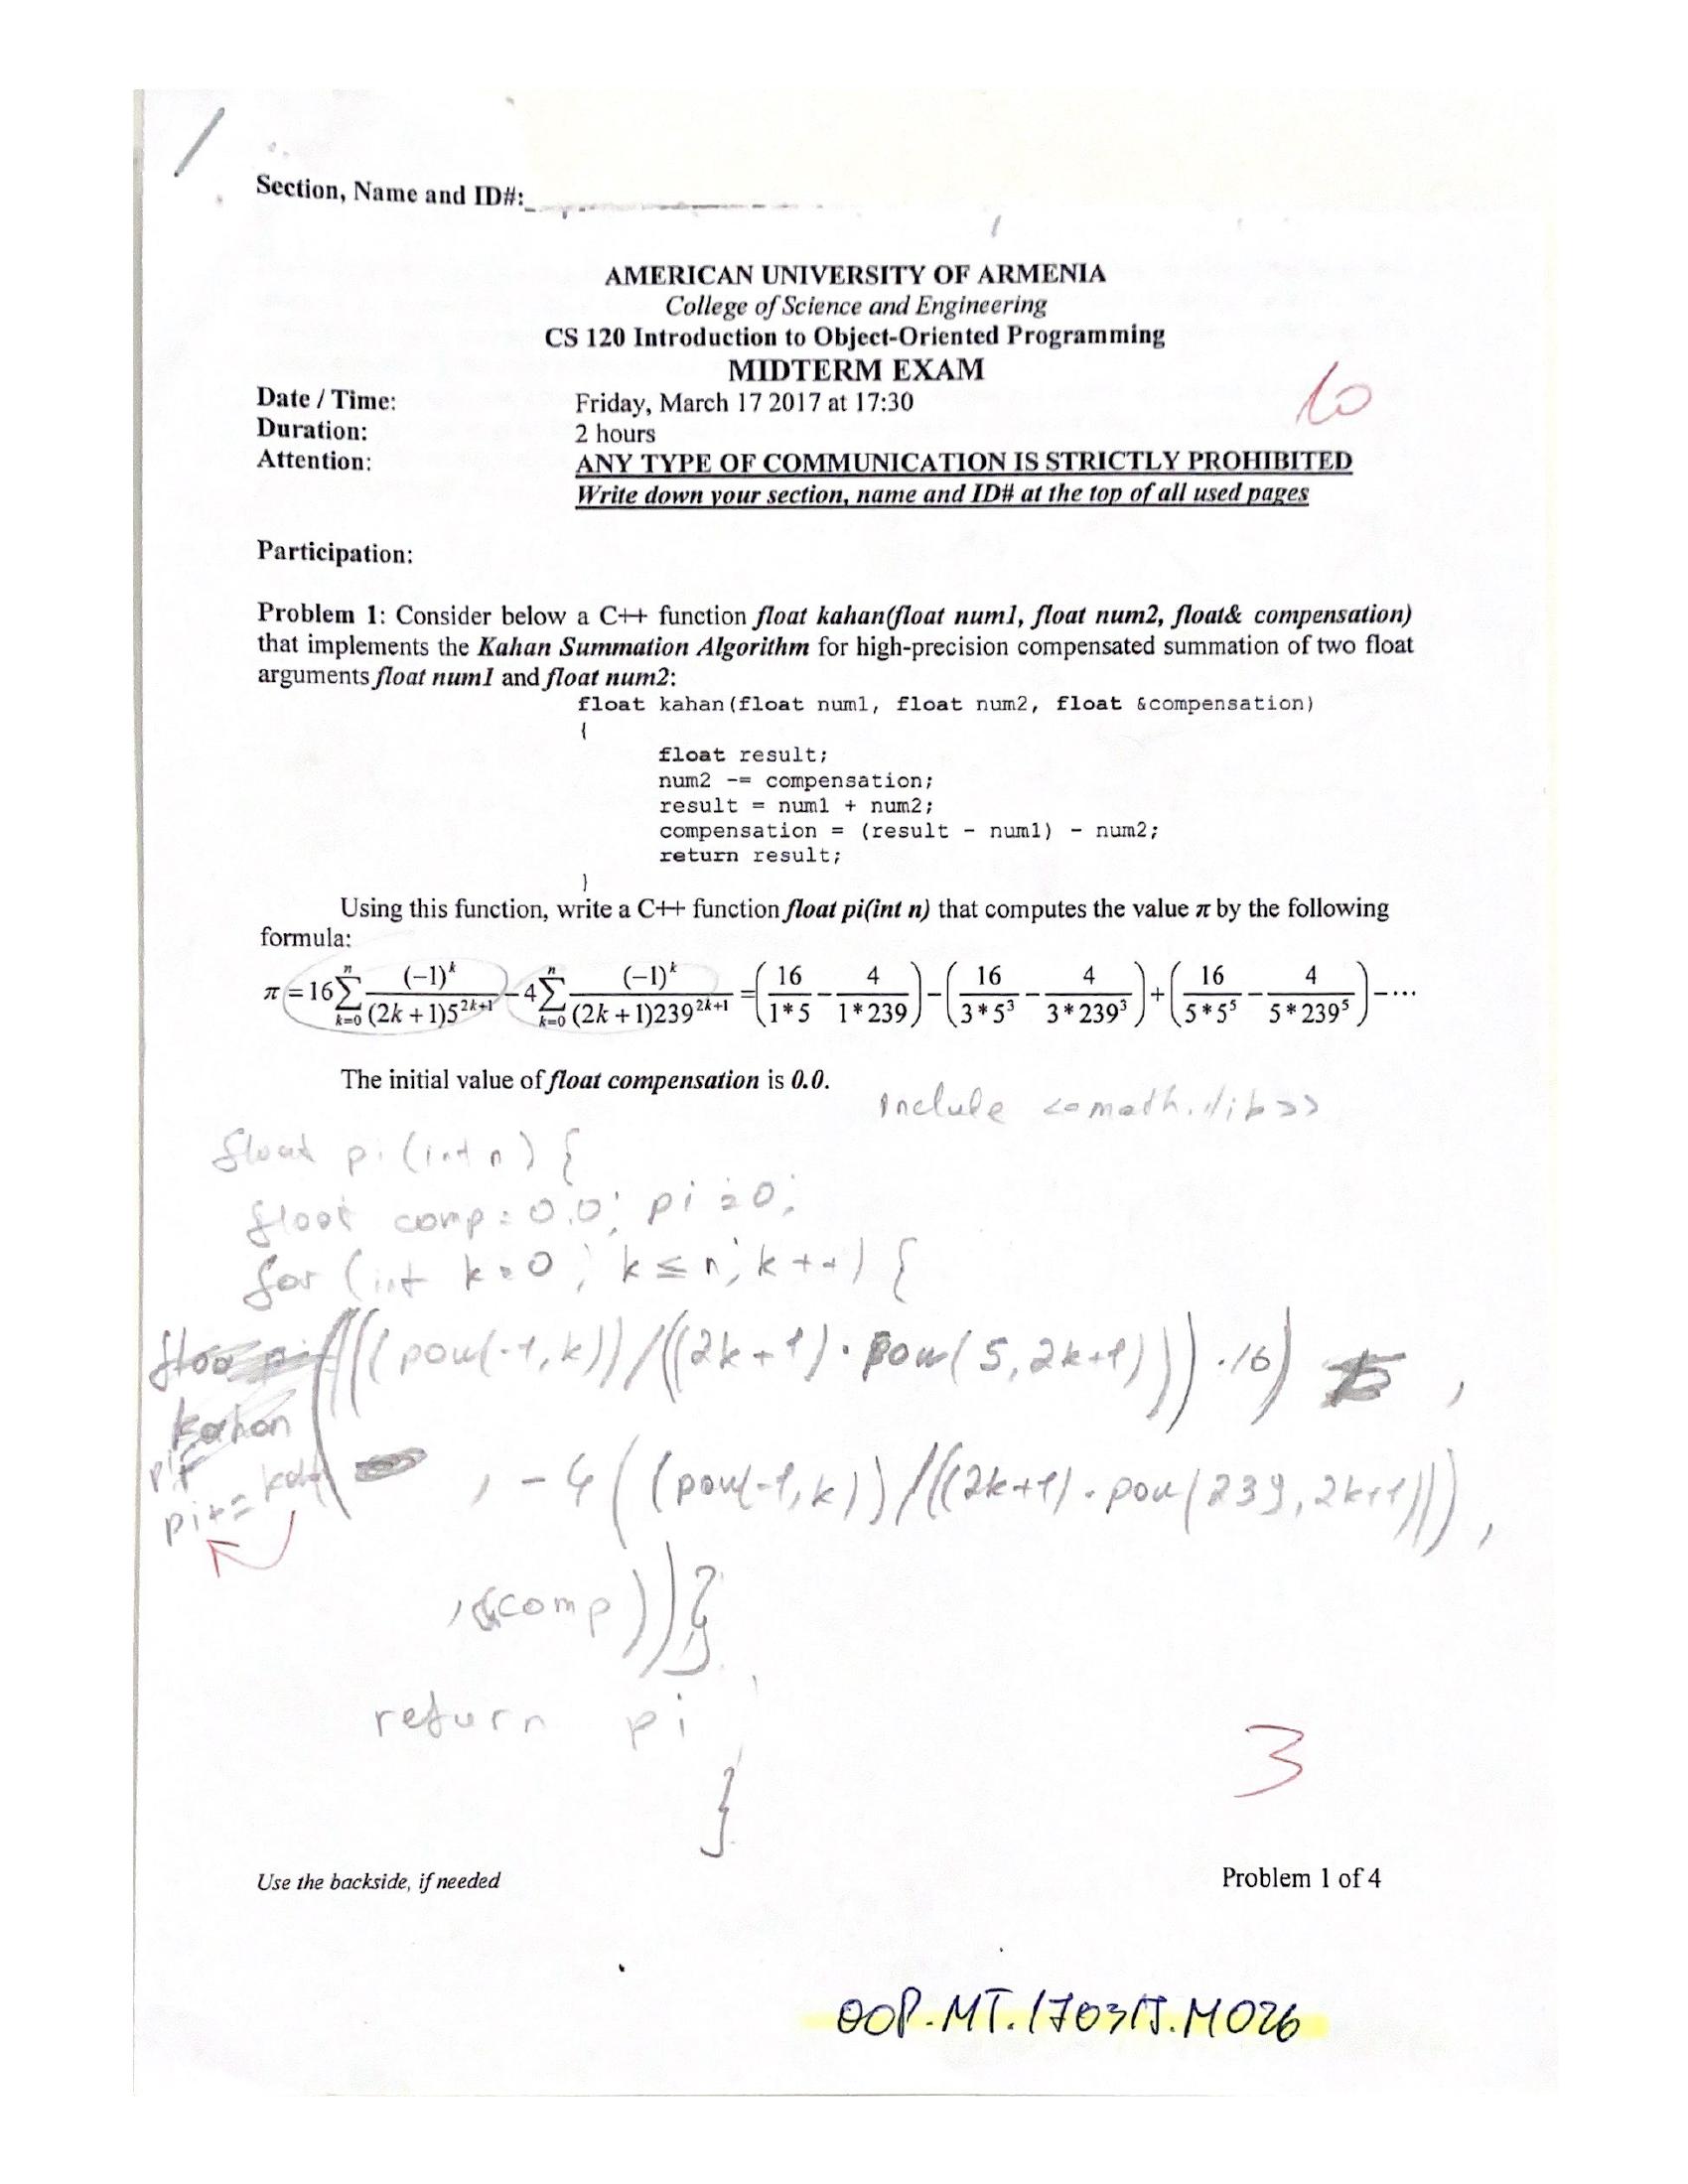 Section, Name and ID#:
AMERICAN UNIVERSITY OF ARMENIA
College of Science and Engineering
CS 120 Introduction to Object-Oriented Programming
MIDTERM EXAM
10
Date / Time: Friday, March 17 2017 at 17:30
Duration: 2 hours
Attention: ANY TYPE OF COMMUNICATION IS STRICTLY PROHIBITED
Write down your section, name and ID# at the top of all used pages
Participation:
Problem 1: Consider below a C++ function float kahan(float num1, float num2, float& compensation)
that implements the Kahan Summation Algorithm for high-precision compensated summation of two float
arguments float num1 and float num2:
float kahan(float num1, float num2, float &compensation)
{
float result;
num2 -= compensation;
result = num1 + num2;
compensation = (result - num1) - num2;
return result;
}
Using this function, write a C++ function float pi(int n) that computes the value π by the following
formula:
π = 16 ∑_{k=0}^{n} (-1)^k / ((2k+1)5^{2k+1}) - 4 ∑_{k=0}^{n} (-1)^k / ((2k+1)239^{2k+1}) = (16/(1*5) - 4/(1*239)) - (16/(3*5^3) - 4/(3*239^3)) + (16/(5*5^5) - 4/(5*239^5)) - ...
The initial value of float compensation is 0.0.
include
float pi(int n) {
float comp = 0.0; pi = 0;
for (int k=0; k ≤ n; k++) {
(((pow(-1,k))/((2k+1)·pow(5,2k+1)))·16) ,
kahan
pi+= , -4((pow(-1,k))/((2k+1)·pow(239,2k+1))),
,&comp))}
return pi
}
3
Use the backside, if needed
Problem 1 of 4
OOP.MT.170317.M026